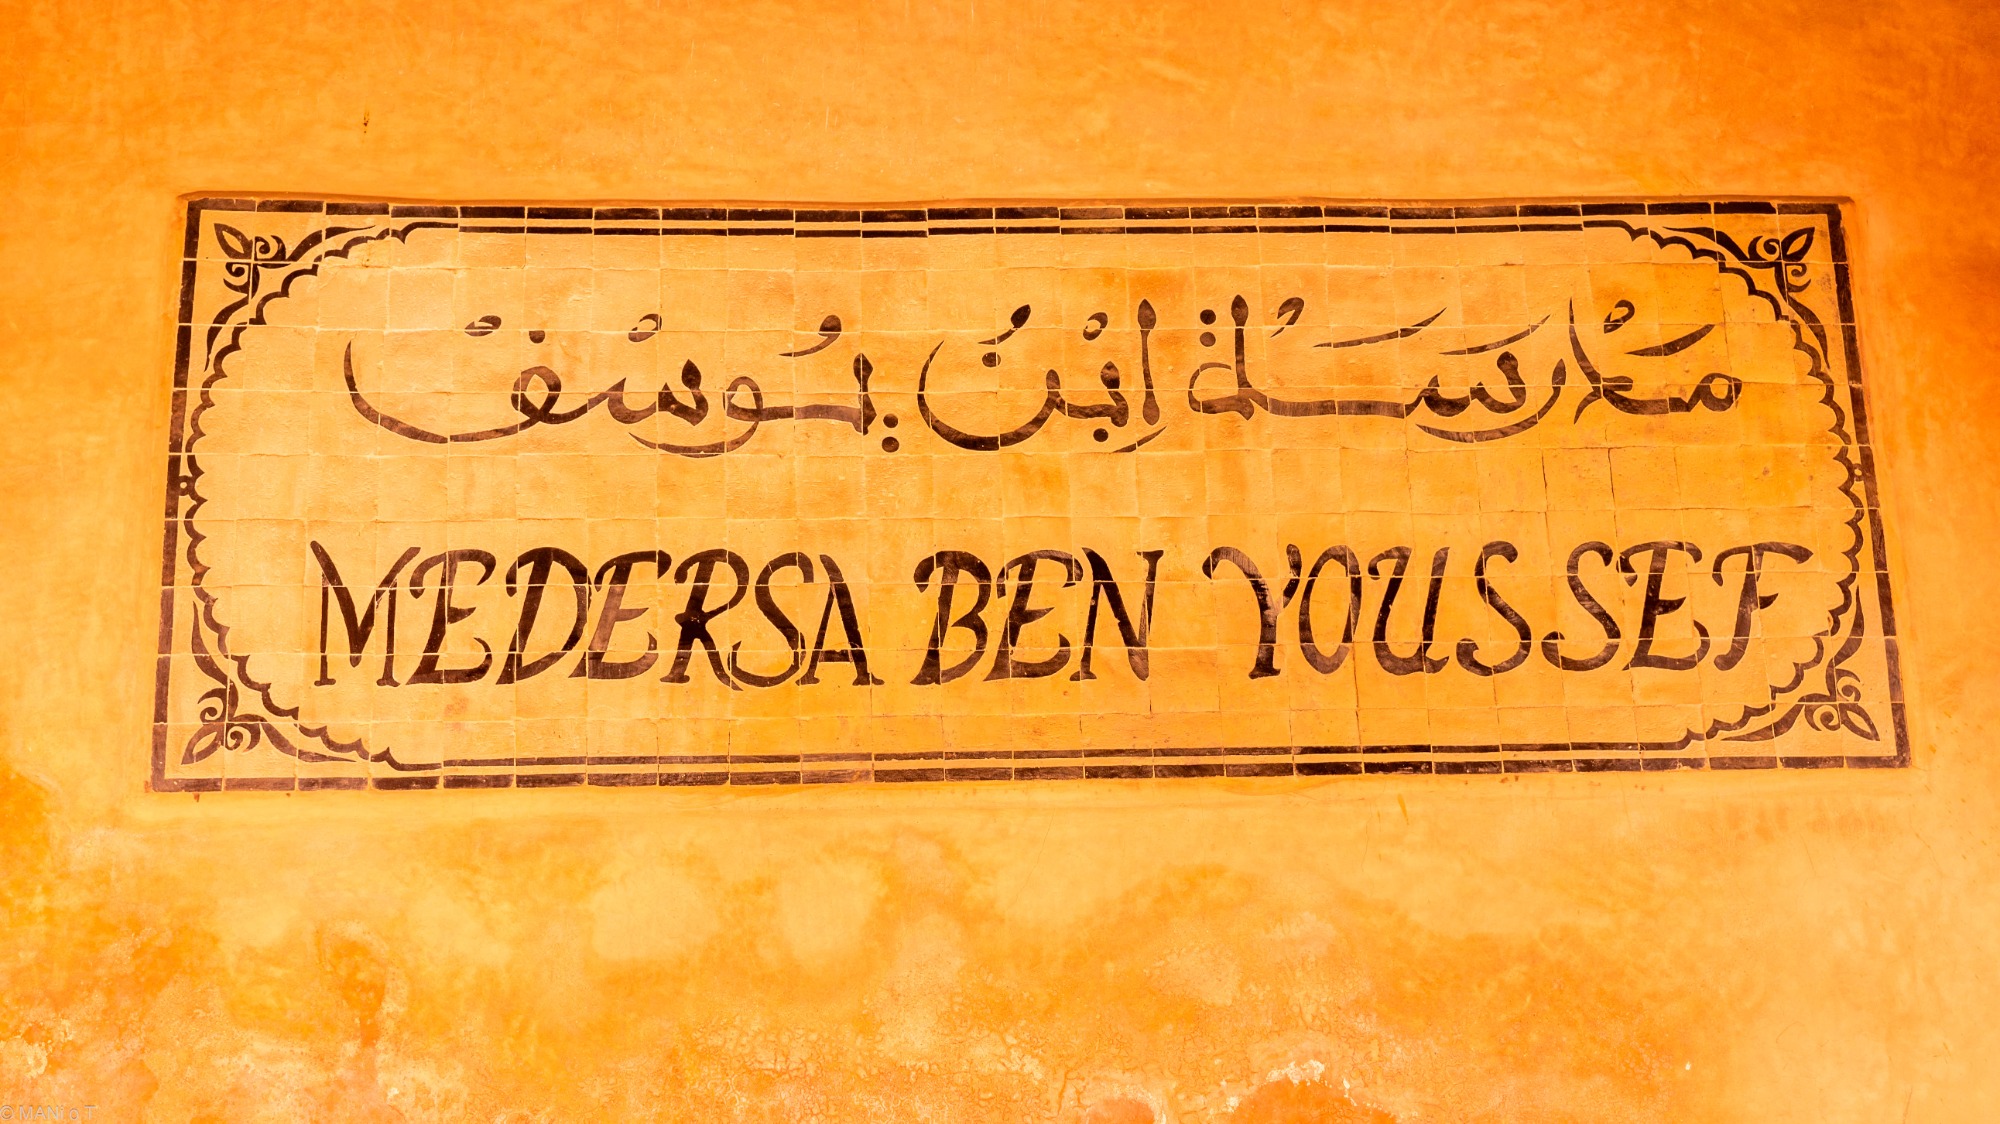 مَدْرَسَة ابْنُ يُوسُفْ
MEDERSA BEN YOUSSEF
© MANi T